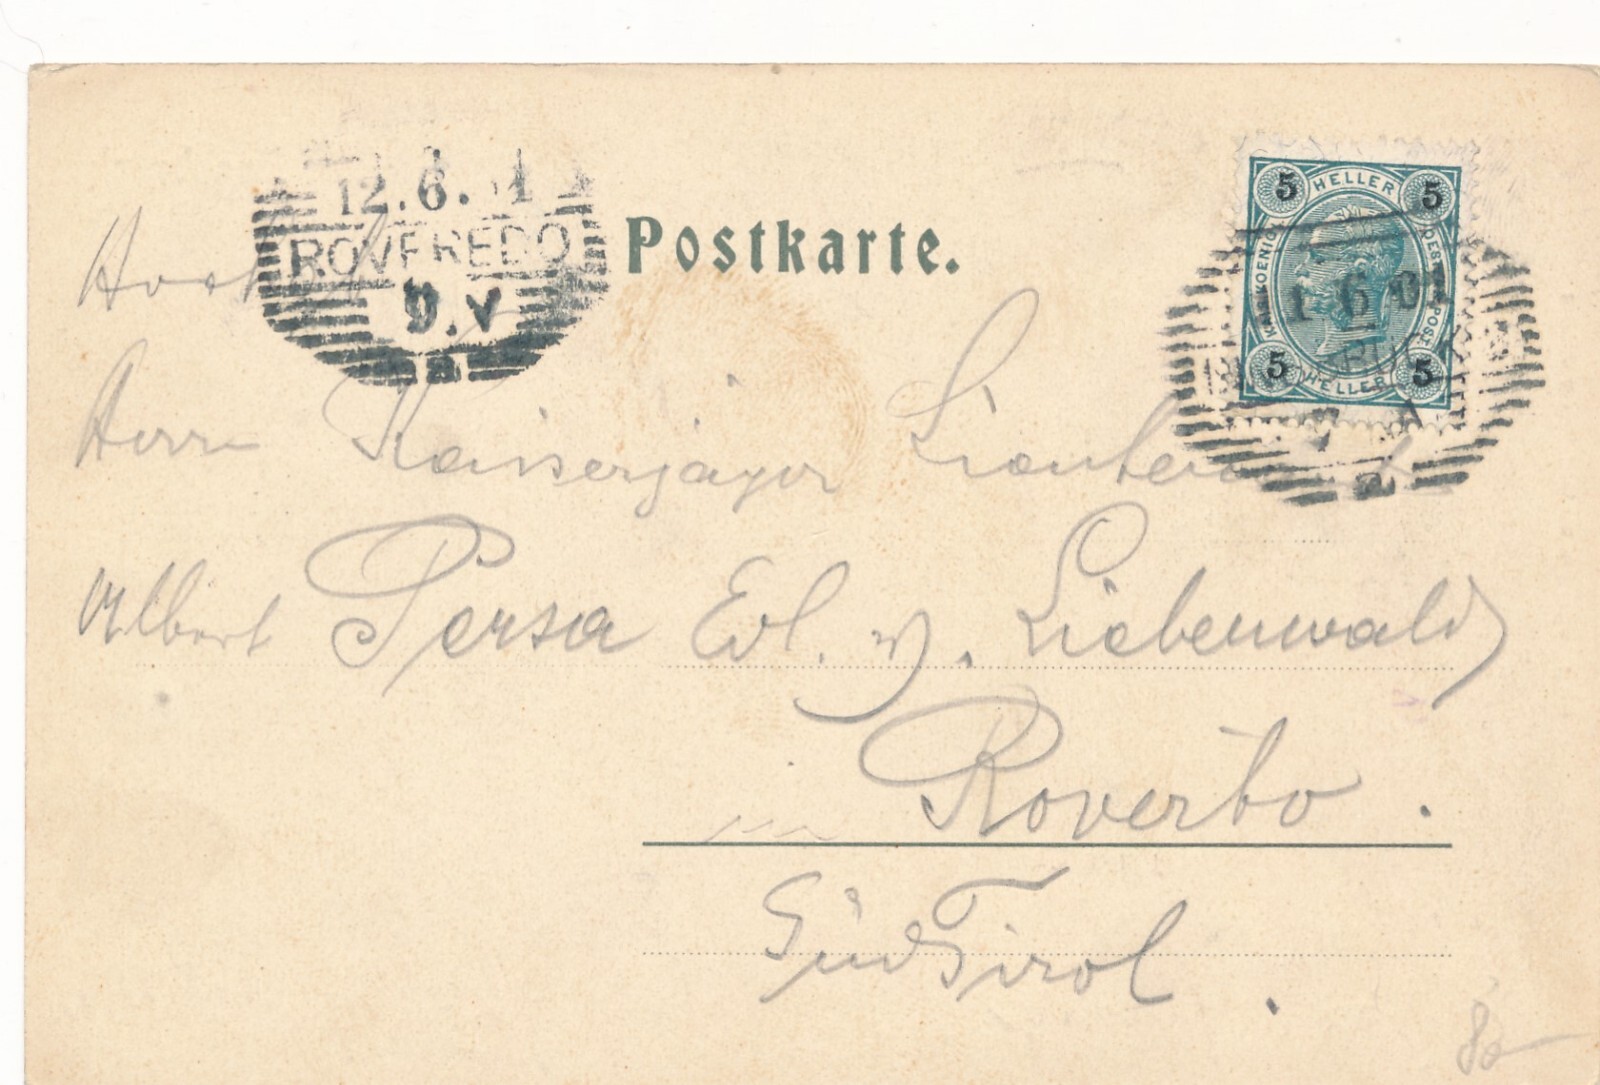 12.6. 1
ROVEREDO
9.V
Postkarte.
5 HELLER 5
KAIS. KOENIG. OEST. POST.
5 HELLER 5
1 6 01
a
Herrn Kaiserjäger Lieutenant
Albert Persa Edl. v. Liebenwald
Roverêto.
Südtirol.